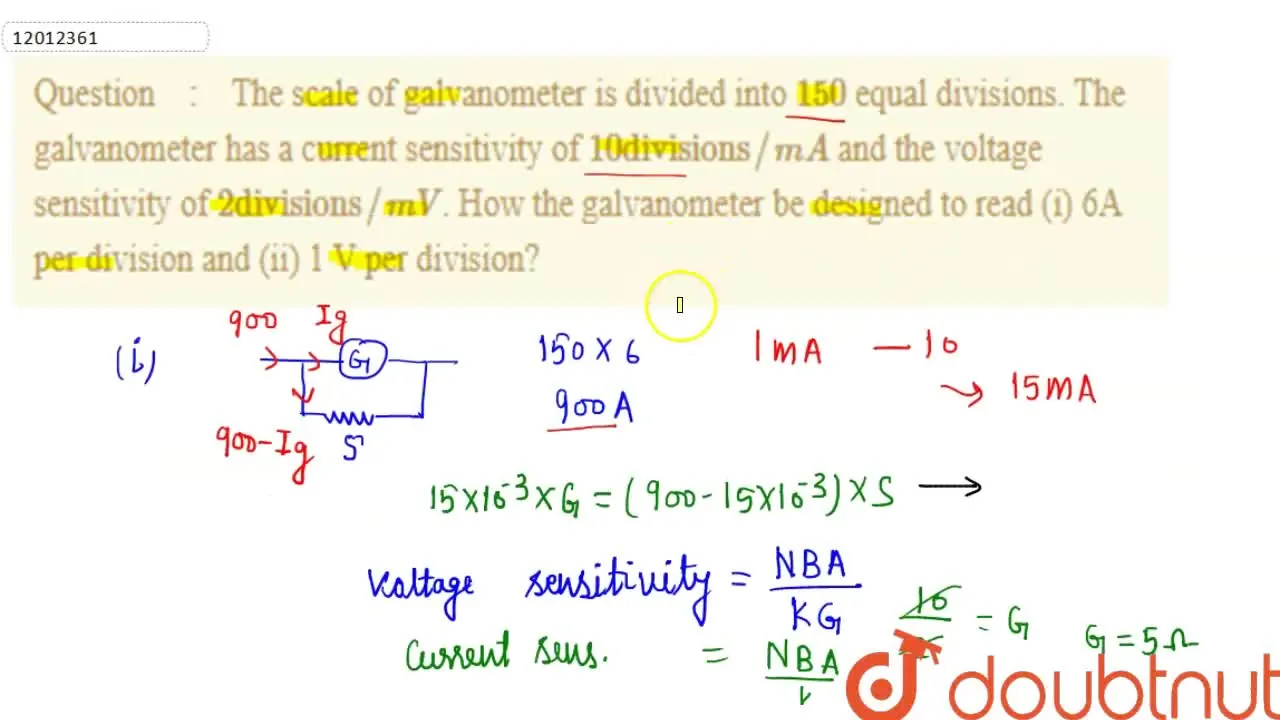 12012361
Question : The scale of galvanometer is divided into 150 equal divisions. The
galvanometer has a current sensitivity of 10divisions/mA and the voltage
sensitivity of 2divisions/mV. How the galvanometer be designed to read (i) 6A
per division and (ii) 1 V per division?
(i)
900 Ig
G
900-Ig S
150 × 6
900A
1mA — 10
→ 15mA
15×10⁻³×G = (900-15×10⁻³)×S →
Voltage sensitivity = NBA/KG
Current sens. = NBA/
10/ = G
G = 5Ω
doubtnut